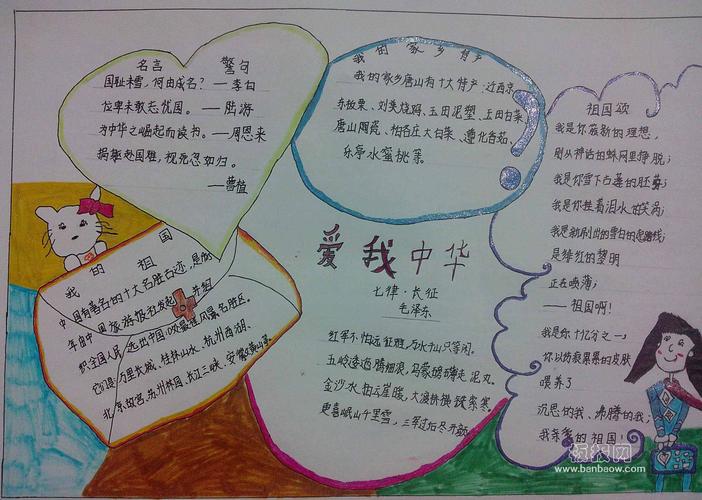 名言 警句
国耻未雪，何由成名？—李白
位卑未敢忘忧国。—陆游
为中华之崛起而读书。—周恩来
捐躯赴国难，视死忽如归。
—曹植
我的家乡特产
我的家乡唐山有十大特产：迁西京
东板栗、刘美烧鸡、玉田泥塑、玉田白菜
唐山陶瓷、柏各庄大白菜、遵化香菇、
乐亭水蜜桃等。
祖国颂
我是你簇新的理想，
刚从神话的蛛网里挣脱；
我是你雪下古莲的胚芽；
我是你挂着泪水的笑涡；
我是新刷出的雪白的起跑线；
是绯红的黎明
正在喷薄；
——祖国啊！
我是你十亿分之一，
你以伤痕累累的
喂养了
沉思的我、沸腾的我；
我亲爱的祖国！
我的祖国
中国有著名的十大名胜古迹，是
年由中国旅游报社发起 并组
织全国人民 选出中国 风景名胜区。
它们是万里长城、桂林山水、杭州西湖、
北京故宫、苏州园林、长江三峡、安徽黄山
爱我中华
七律·长征
毛泽东
红军不怕远征难，万水千山只等闲。
五岭逶迤腾细浪，乌蒙磅礴走泥丸。
金沙水拍云崖暖，大渡桥横铁索寒。
更喜岷山千里雪，三军过后尽开颜
板报网
www.banbaow.com